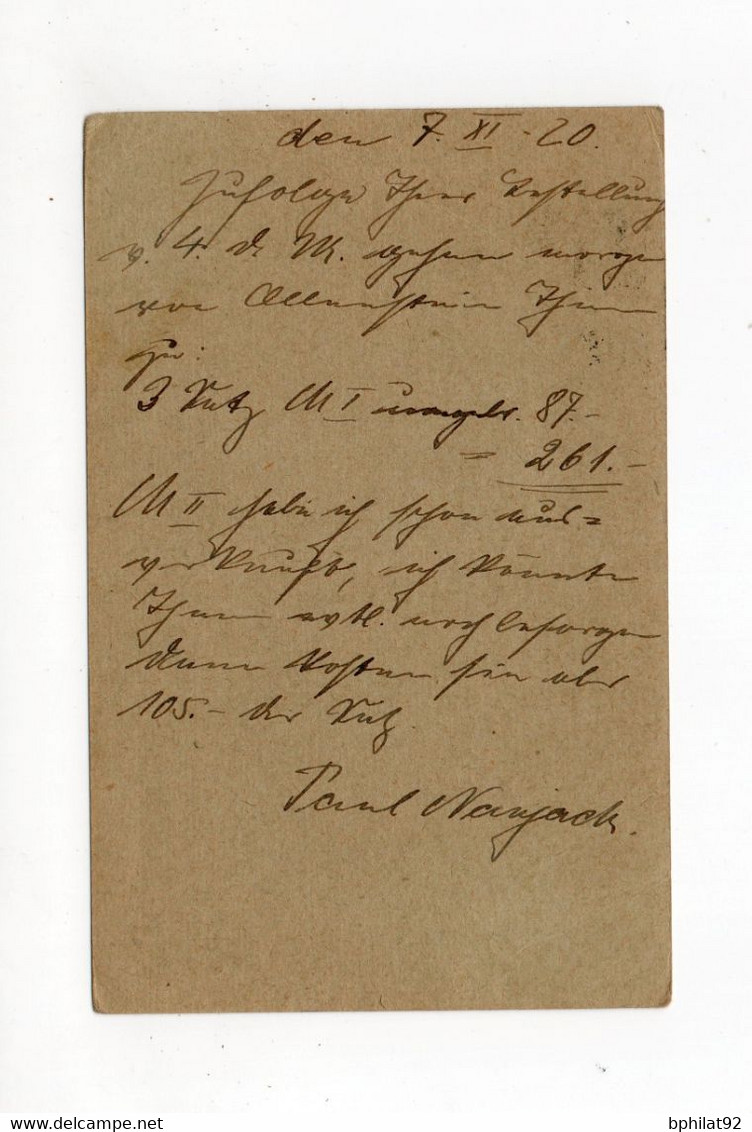 den 7. XI - 20.
Zufolge Ihrer Bestellung
v. 4. d. M. gehen morgen
von Allenstein Ihnen
zu:
3 Satz M I ungebr. 87.-
= 261.-
M II habe ich schon aus=
verkauft, ich könnte
Ihnen evtl. noch besorgen
dann kosten sie aber
105.- der Satz.
Paul Naujack.
www.delcampe.net
bphilat92